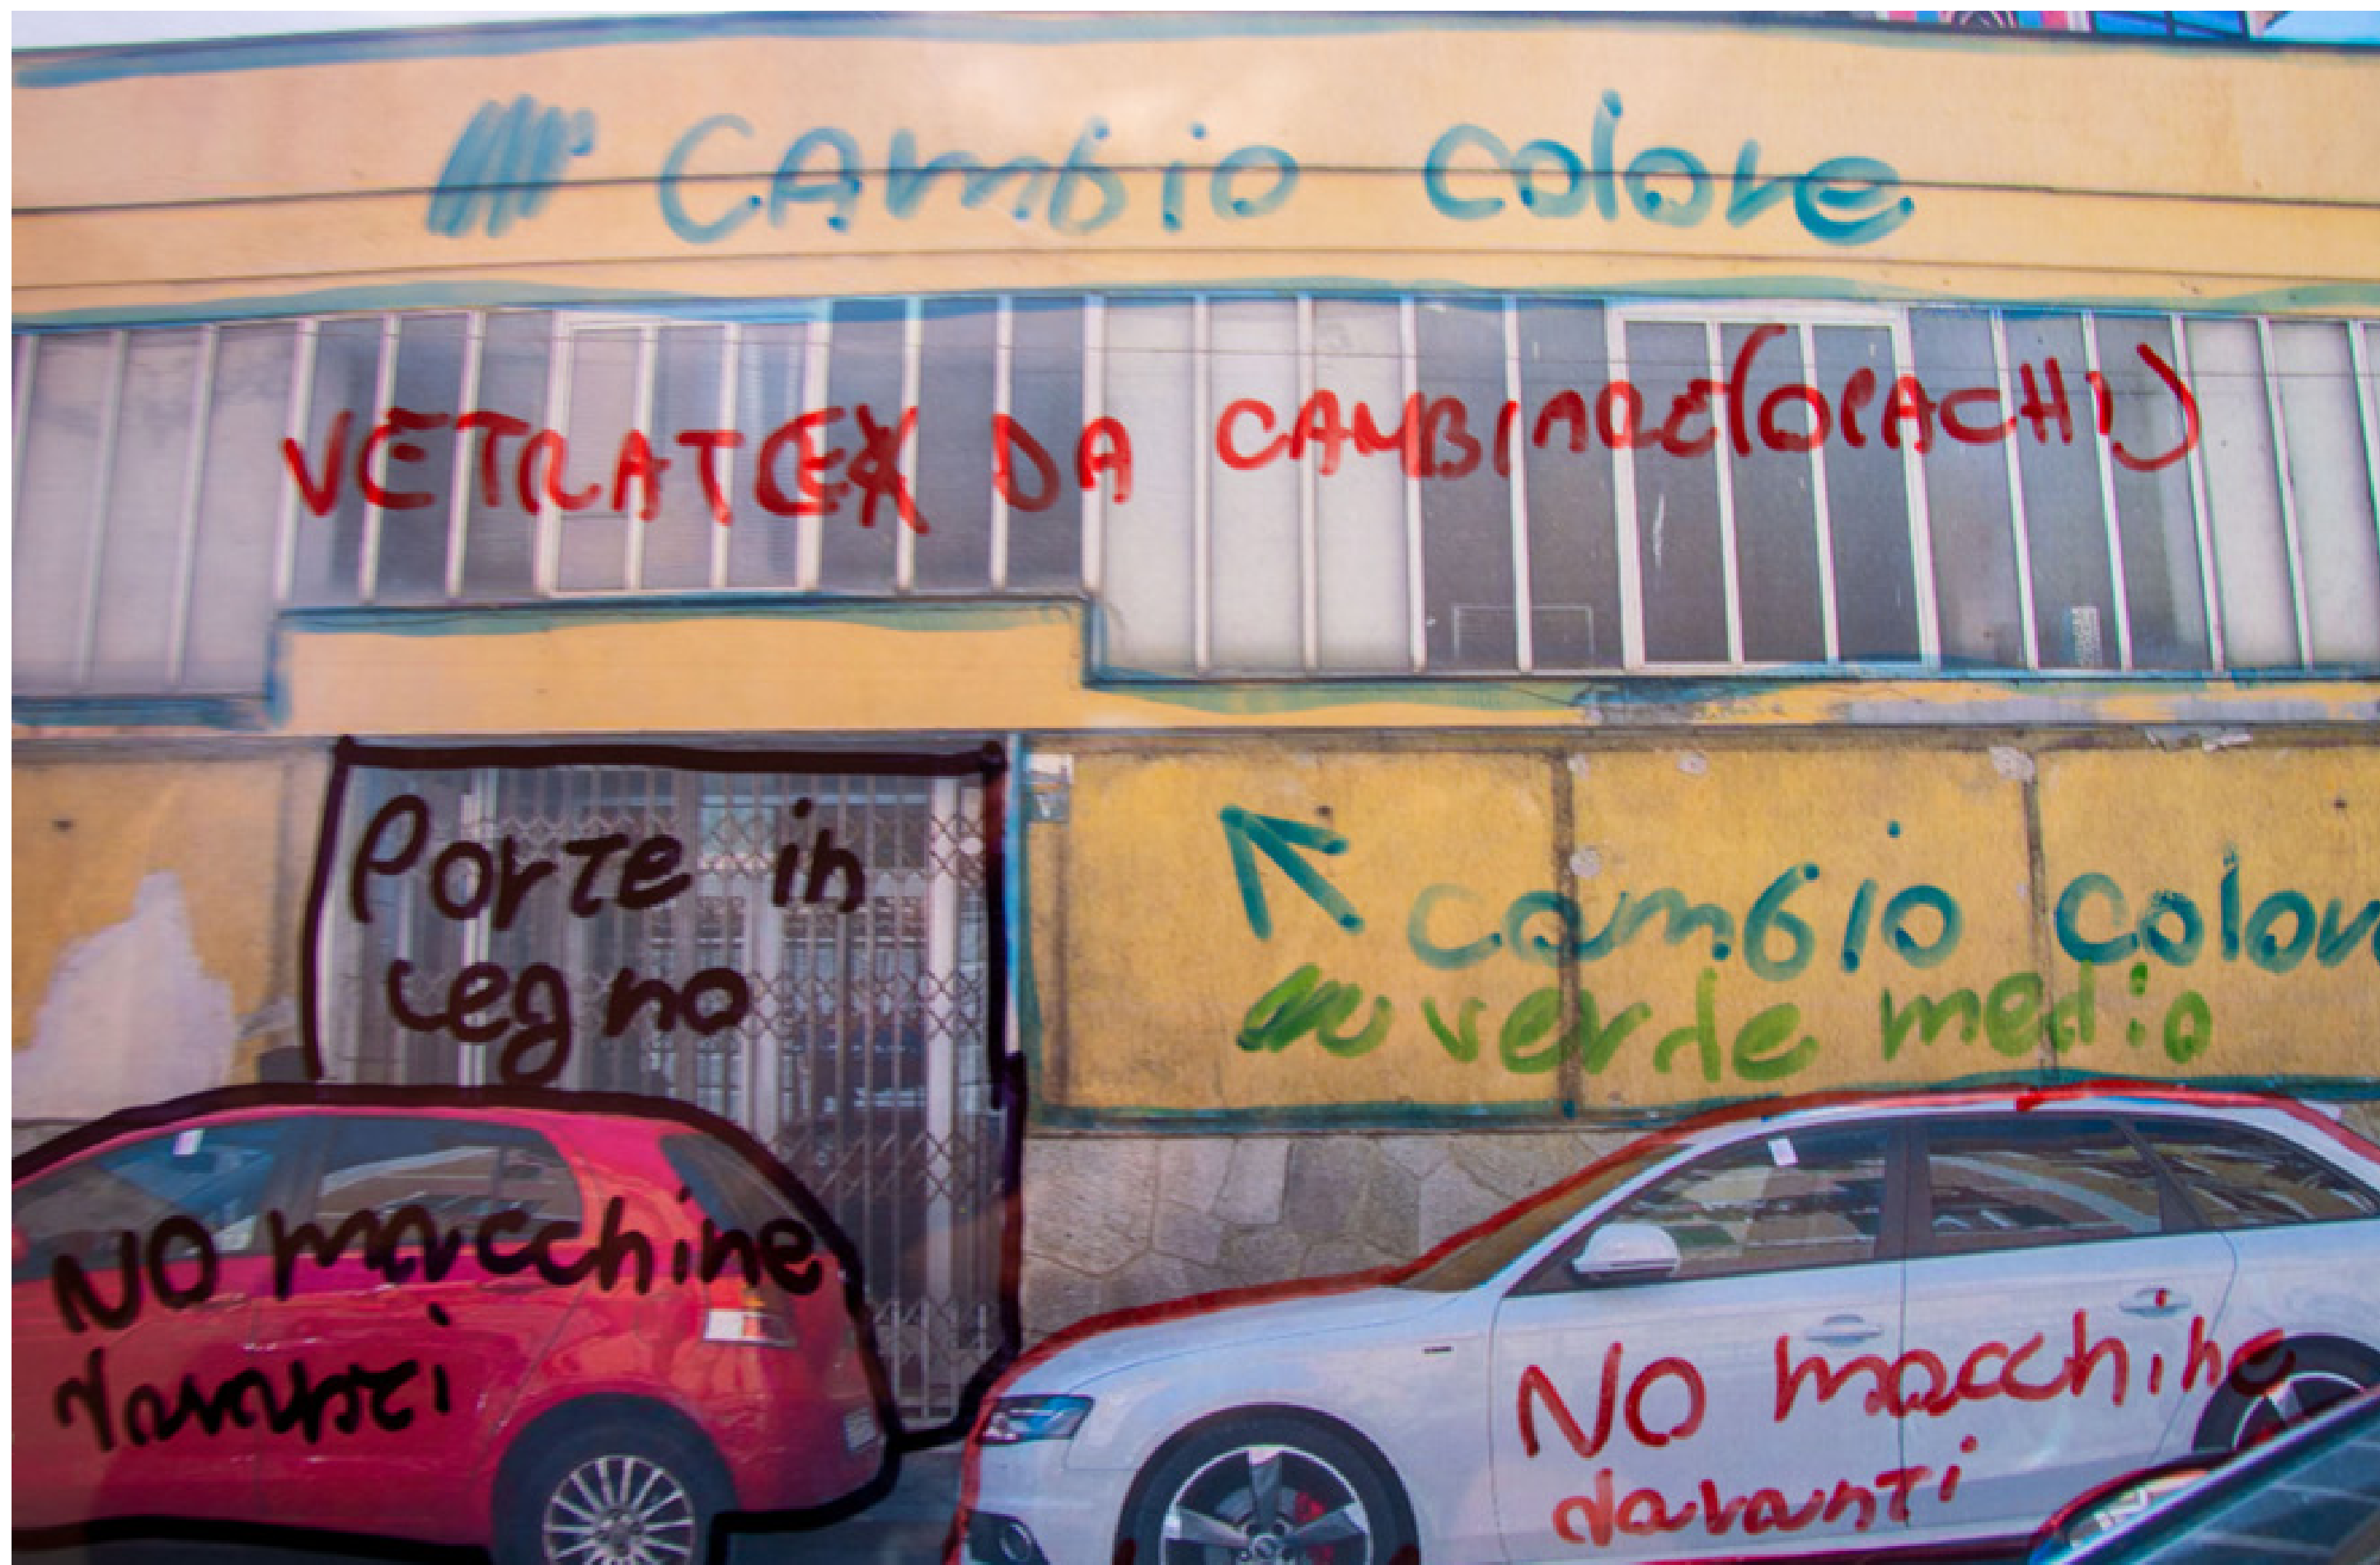 CAmbio colore
VETRATE DA CAMBIARE (OPACHI)
Porte in
legno
cambio color
verde medio
NO macchine
davanti
NO macchine
davanti